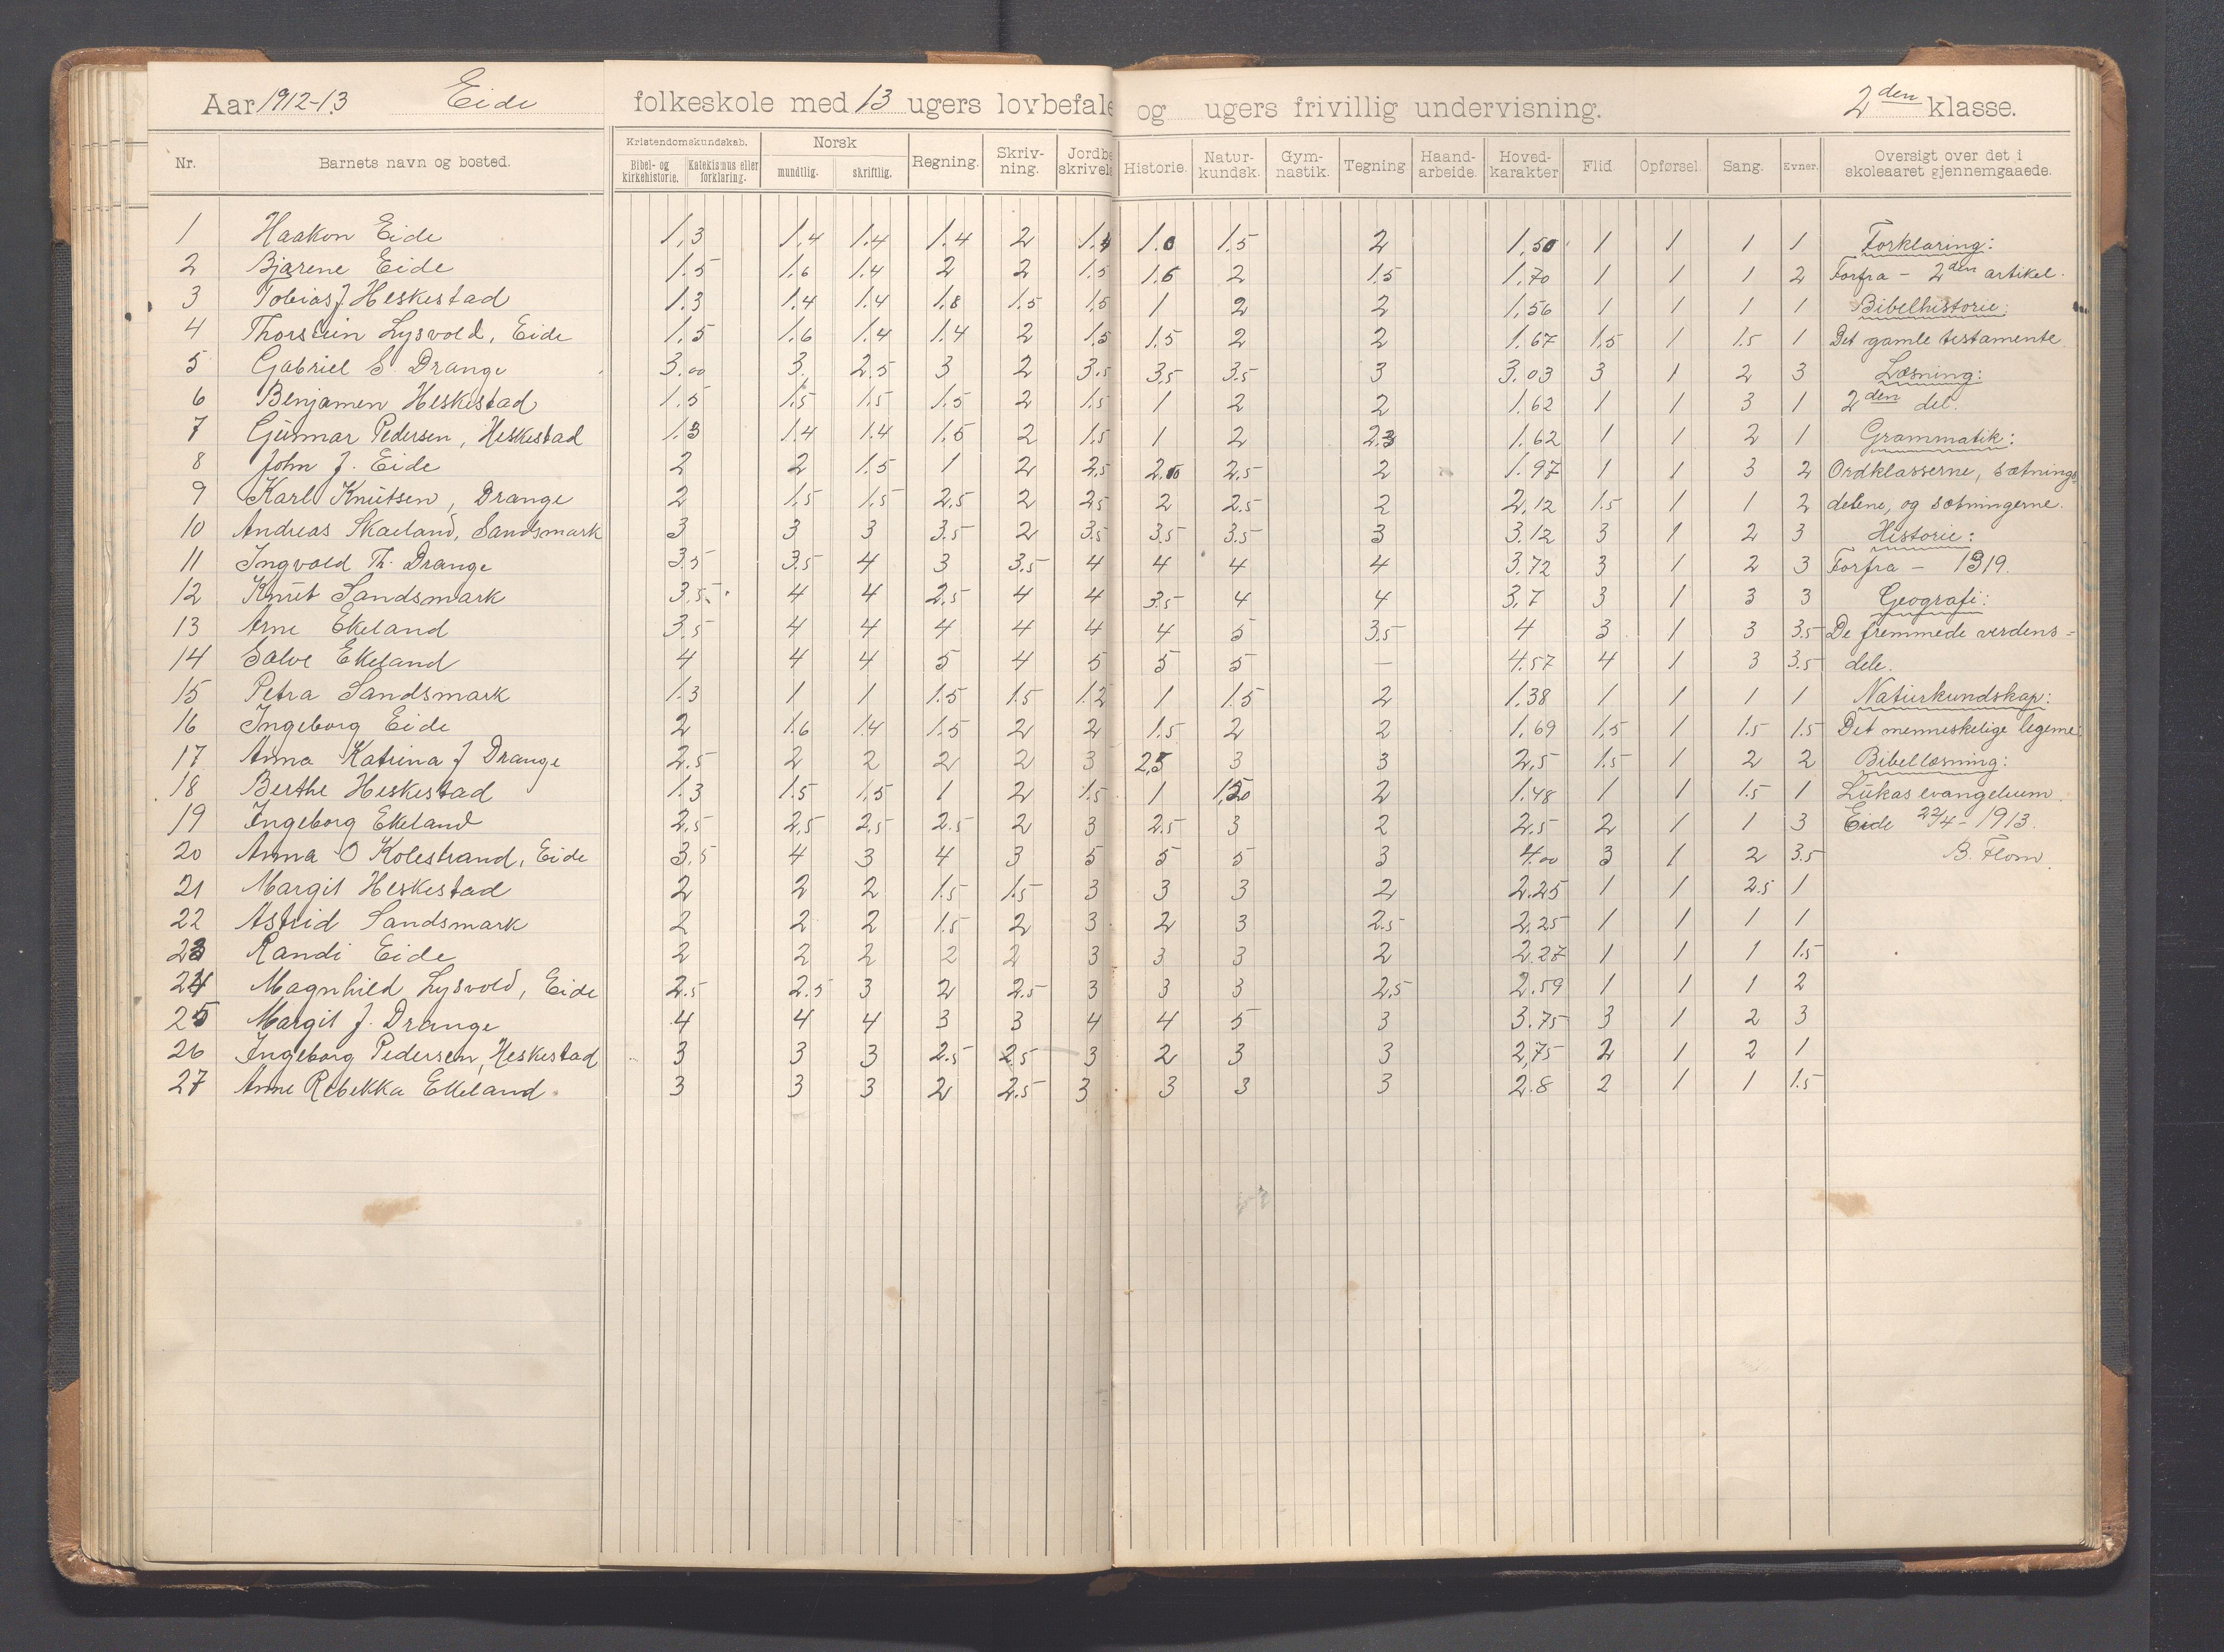 Aar 1912-13 Eide folkeskole med 13 ugers lovbefale og ugers frivillig undervisning. 2den klasse.
Nr. Barnets navn og bosted. Kristendomskundskab. Bibel- og kirkehistorie. Katekismus eller forklaring. Norsk mundtlig. skriftlig. Regning. Skriv-ning. Jordbe skrivels Historie. Natur-kundsk. Gym-nastik. Tegning Haand-arbeide. Hoved-karakter Flid. Opførsel. Sang. Evner. Oversigt over det i skoleaaret gjennemgaaede.
1 Haakon Eide 1,3 1,4 1.4 1.4 2 1. 1.0 1.5 2 1,50 1 1 1 1 Forklaring:
2 Bjarene Eide 1.5 1.6 1.4 2 2 1.5 1.6 2 1.5 1.70 1 1 1 2 Forfra - 2den artikel.
3 Tobias J Heskestad 1.3 1.4 1.4 1.8 1.5 1,5 1 2 2 1,56 1 1 1 1 Bibelhistorie:
4 Thorstein Lysvold, Eide 1,5 1.6 1.4 1.4 2 1,5 1.5 2 2 1.67 1,5 1 1.5 1 Det gamle testamente.
5 Gabriel S Drange 3.00 3. 2.5 3 2 3.5 3.5 3.5 3 3.03 3 1 2 3 Læsning:
6 Benjamen Heskestad 1.5 1.5 1.5 1.5 2 1.5 1 2 2 1.62 1 1 3 1 2den del.
7 Gunnar Pedersen, Heskestad 1.3 1.4 1.4 1.5 2 1,5 1 2 2.3 1.62 1 1 2 1 Grammatik:
8 John J. Eide 2 2 1.5 1 2 2,5 2. 2,5 2 1.97 1 1 3 2 Ordklasserne, sætnings
9 Karl Knutsen, Drange 2 1.5 1.5 2.5 2 2.5 2 2.5 2 2,12 1.5 1 1 2 delene, og sætningerne.
10 Andreas Skaeland, Sandsmark 3 3 3 3.5 2 3.5 3.5 3.5 3 3.12 3 1 2 3 Historie:
11 Ingvald Th. Drange 3.5 3.5 4 3 3.5 4 4 4 4 3.72 3 1 2 3 Forfra - 1319.
12 Knut Sandsmark 3.5. 4 4 2.5 4 4 3.5 4 4 3,7 3 1 3 3 Geografi:
13 Arne Ekeland 3.5 4 4 4 4 4 4 5 3.5 4 3 1 3 3.5 De fremmede verdens=
14 Salve Ekeland 4 4 4 5 4 5 5 5 — 4.57 4 1 3 3.5 dele.
15 Petra Sandsmark 1.3 1 1 1.5 1.5 1.2 1 1.5 2 1.38 1 1 1 1 Naturkundskap:
16 Ingeborg Eide 2 1.6 1.4 1.5 2 2 1.5 2 2 1,69 1,5 1 1.5 1.5 Det menneskelige legeme.
17 Anna Katrina J Drange 2.5 2 2 2 2 3 2,5 3 3 2,5 1.5 1 2 2 Bibellæsning:
18 Berthe Heskestad 1.3 1.5 1,5 1 2 1.5 1 2 1.48 1 1 1.5 1 Lukas evangelium.
19 Ingeborg Ekeland 2,5 2,5 2,5 2.5 2 3 2.5 3 2 2.5 2 1 1 3 Eide 22/4 - 1913.
20 Anna O Kolestrand, Eide 3.5 4 3 4 3 5 5 5 3 4.00 3 1 2 3.5 B. Flom.
21 Margit Heskestad 2 2 2 1.5 1.5 3 3 3 2 2.25 1 1 2.5 1
22 Astrid Sandsmark 2 2 2 1.5 2 3 2 3 2.5 2,25 1 1 1 1
23 Randi Eide 2 2 2 2 2 3 3 3 2 2.27 1 1 1 1.5
24 Magnhild Lysvold, Eide 2.5 2.5 3 2 2.5 3 3 3 2,5 2.59 1 1 1 2
25 Margit J. Drange 4 4 4 3 3 4 4 5 3 3.75 3 1 2 3
26 Ingeborg Pedersen, Heskestad 3 3 3 2.5 2.5 3 2 3 3 2,75 2 1 2 1
27 Anne Rebekka Ekeland. 3 3 3 2 2.5 3 3 3 3 2.8 2 1 1 1.5